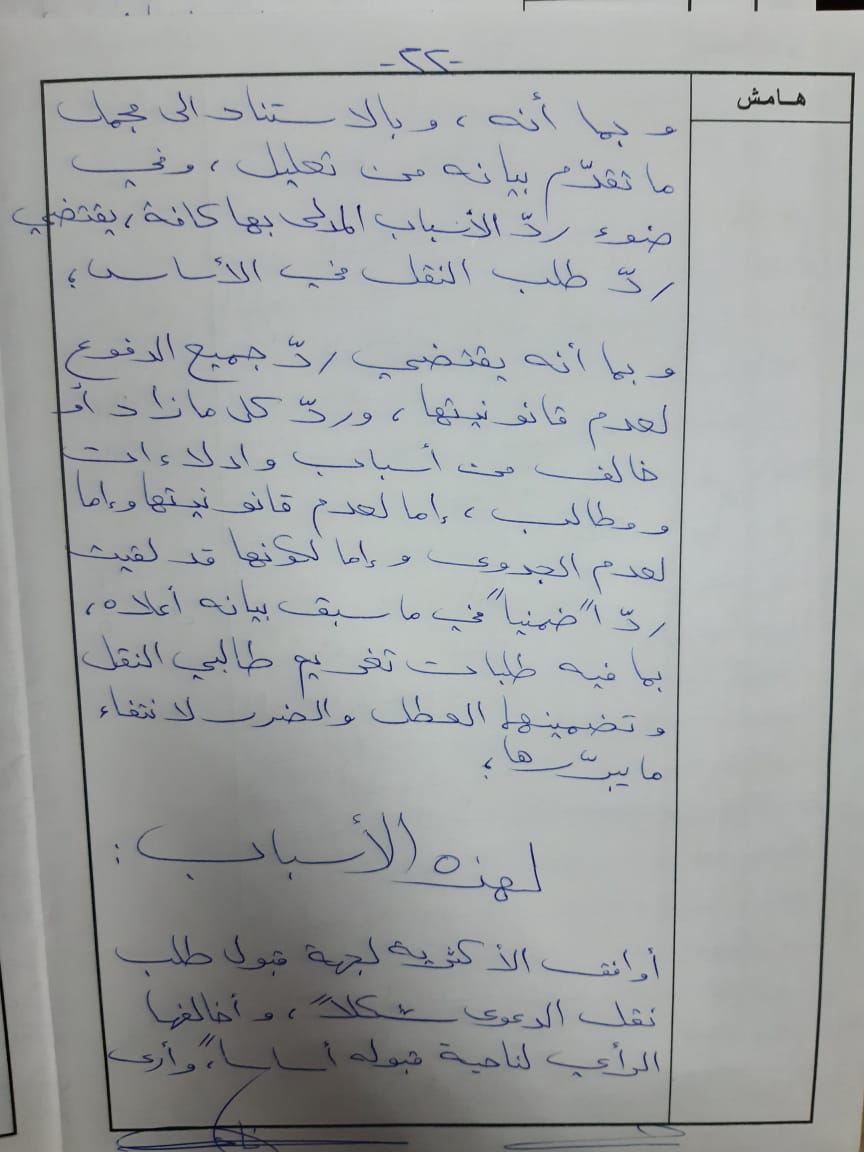 -٢٢-
هـامش
و بما أنه ، و بالاستناد الى مجمل
ما تقدّم بيانه من تعليل ، و في
ضوء ردّ الأسباب المدلى بها كافة ، يقتضي
ردّ طلب النقل في الأساس ؛
و بما أنه يقتضي ردّ جميع الدفوع
لعدم قانونيتها ، و ردّ كل ما زاد أو
خالف من أسباب و ادلاءات
و مطالب ، إما لعدم قانونيتها و إما
لعدم الجدوى و إما لكونها قد لقيت
ردّاً ضمنياً في ما سبق بيانه أعلاه ،
بما فيه طلبات تغريم طالبي النقل
و تضمينهما العطل والضرر لانتفاء
ما يبرّرها ؛
لهذه الأسباب :
أوافق الأكثرية لجهة قبول طلب
نقل الدعوى شكلاً ، و أخالفها
الرأي لناحية قبوله أساساً ، و أرى